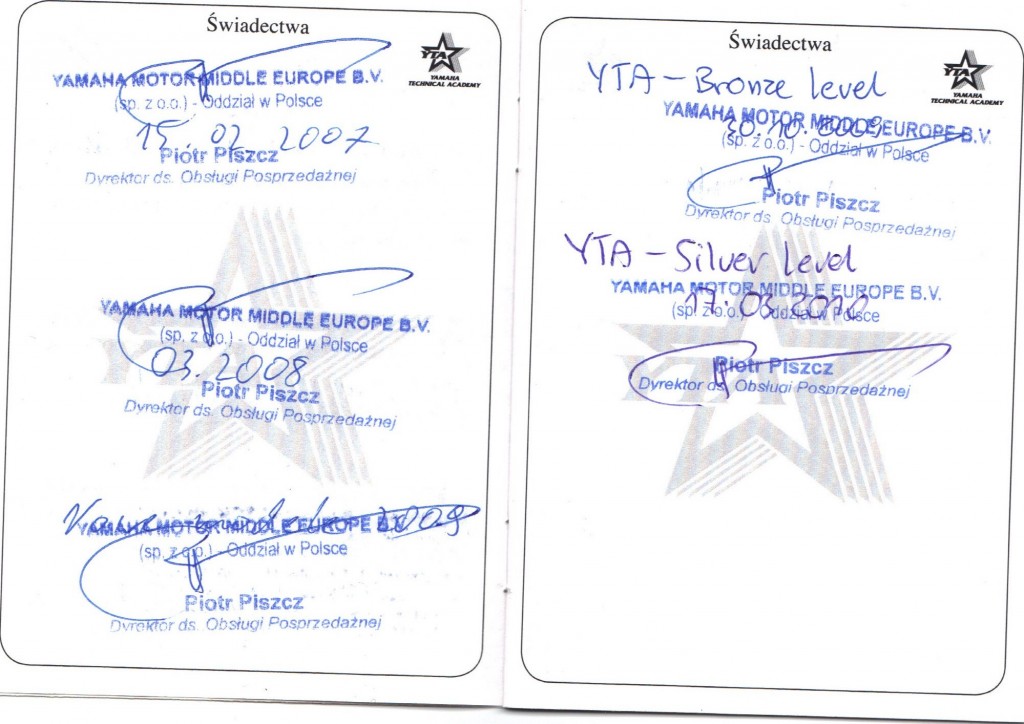 Świadectwa
YTA
YAMAHA
TECHNICAL ACADEMY
YAMAHA MOTOR MIDDLE EUROPE B.V.
(sp. z o.o.) - Oddział w Polsce
15.02.2007
Piotr Piszcz
Dyrektor ds. Obsługi Posprzedażnej
YAMAHA MOTOR MIDDLE EUROPE B.V.
(sp. z o.o.) - Oddział w Polsce
03.2008
Piotr Piszcz
Dyrektor ds. Obsługi Posprzedażnej
2009
YAMAHA MOTOR MIDDLE EUROPE B.V.
(sp. z o.o.) - Oddział w Polsce
Piotr Piszcz
Dyrektor ds. Obsługi Posprzedażnej
Świadectwa
YTA
YAMAHA
TECHNICAL ACADEMY
YTA - Bronze level
YAMAHA MOTOR MIDDLE EUROPE B.V.
30.10.2009
(sp. z o.o.) - Oddział w Polsce
Piotr Piszcz
Dyrektor ds. Obsługi Posprzedażnej
YTA - Silver level
YAMAHA MOTOR MIDDLE EUROPE B.V.
17.03.2010
(sp. z o.o.) - Oddział w Polsce
Piotr Piszcz
Dyrektor ds. Obsługi Posprzedażnej